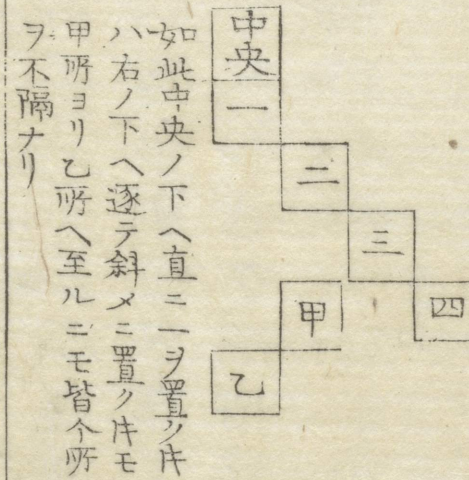 中央
一
二
三
四
甲
乙
如此中央ノ下ヘ直ニ一ヲ置ク𪜈
ハ右ノ下ヘ逐テ斜メニ置ク𪜈モ
甲所ヨリ乙所ヘ至ルニモ皆今所
ヲ不隔ナリ